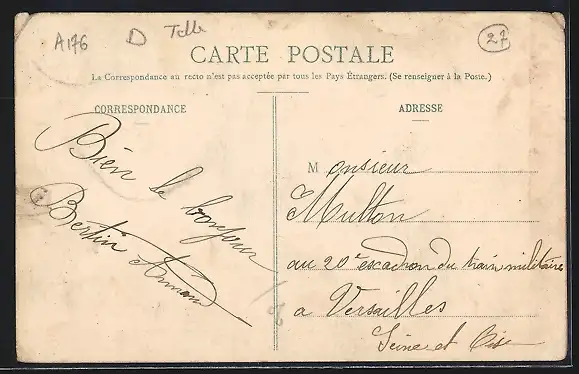 A176 D Telle 27
CARTE POSTALE
La Correspondance au recto n'est pas acceptée par tous les Pays Étrangers. (Se renseigner à la Poste.)
CORRESPONDANCE
Bien le bonjour
Bertin Armand
ADRESSE
Monsieur
Multon
au 20e escadron du train militaire
a Versailles
Seine et Oise